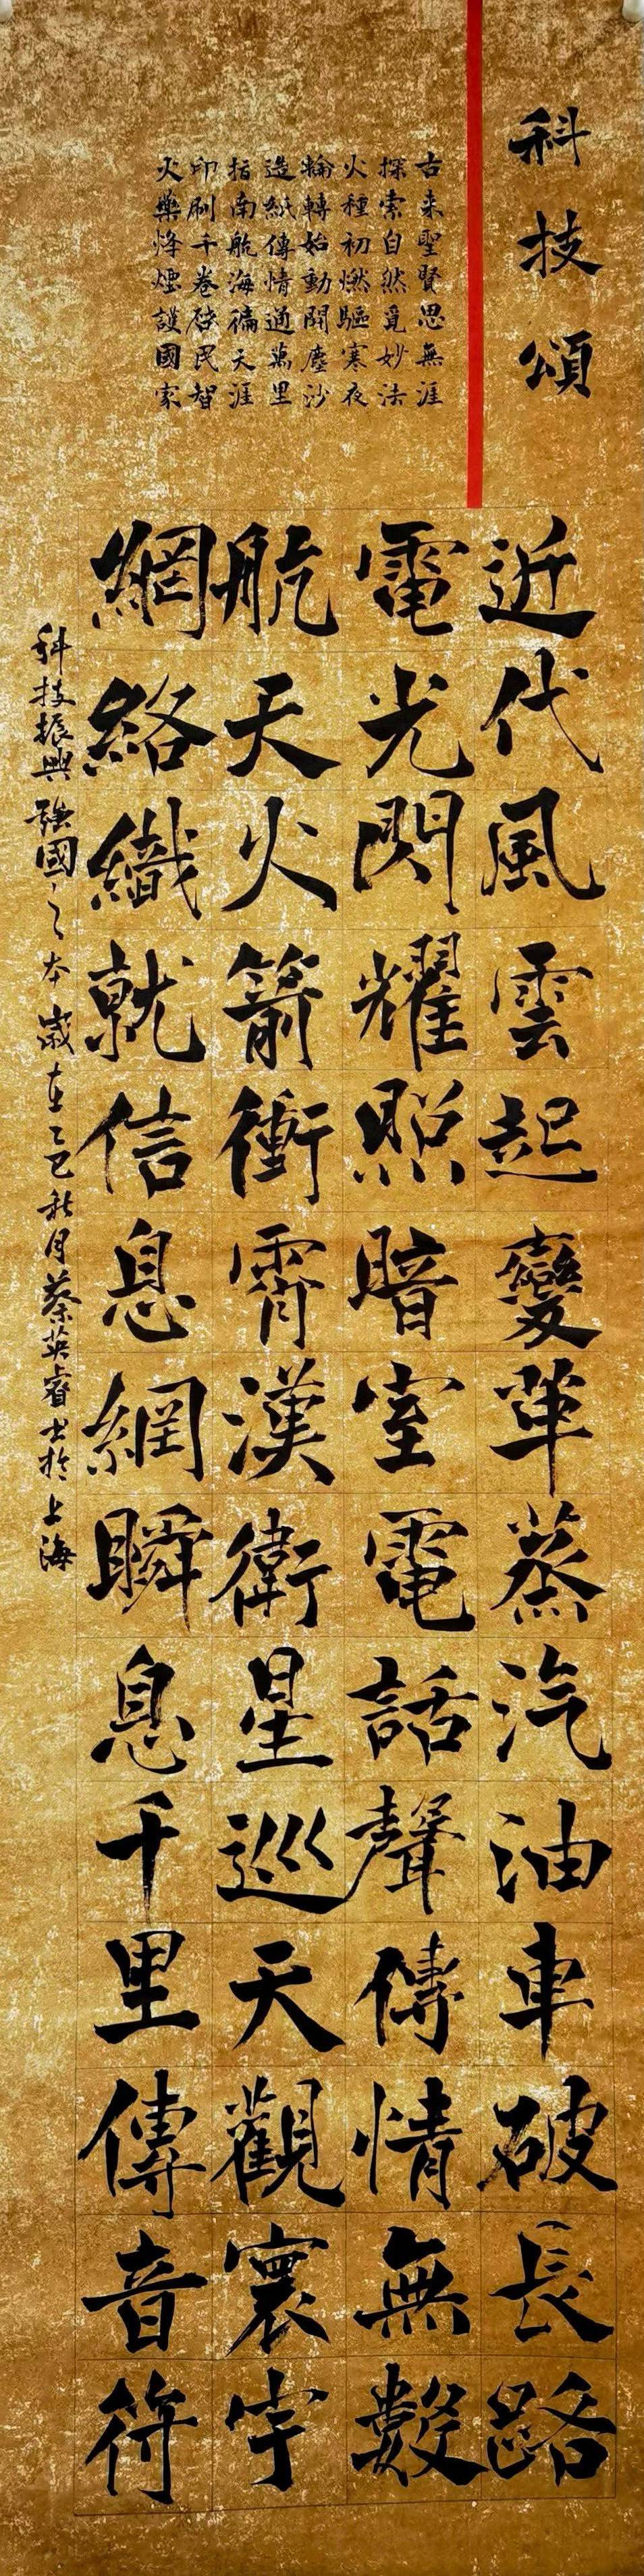 科技頌
古來聖賢思無涯
探索自然覓妙法
火種初燃驅寒夜
輪轉始動開塵沙
造紙傳情通萬里
指南航海徧天涯
印刷千卷啓民智
火藥烽煙護國家
近代風雲起變革蒸汽油車破長路
電光閃耀照暗室電話聲傳情無數
航天火箭衝霄漢衛星巡天觀寰宇
網絡織就信息網瞬息千里傳音符
科技振興強國之本歲在乙巳秋月蔡英睿書於上海